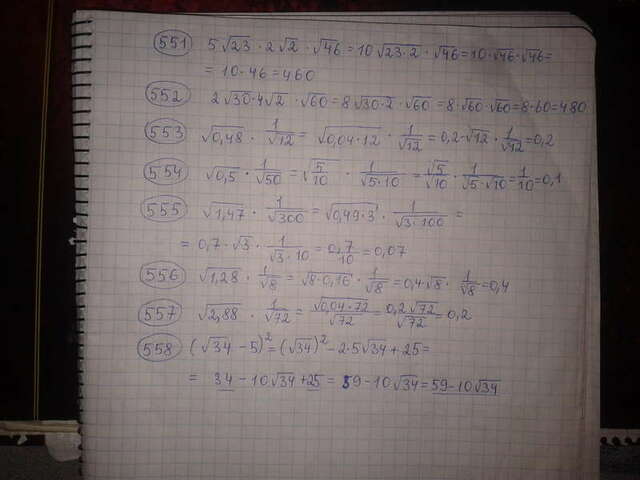 551 5√23 · 2√2 · √46 = 10√23·2 · √46 = 10·√46·√46 =
= 10·46 = 460
552 2√30·4√2 · √60 = 8√30·2 · √60 = 8·√60·√60 = 8·60 = 480
553 √0,48 · 1/√12 = √0,04·12 · 1/√12 = 0,2·√12 · 1/√12 = 0,2
554 √0,5 · 1/√50 = √5/10 · 1/√5·10 = √5/√10 · 1/√5·√10 = 1/10 = 0,1
555 √1,47 · 1/√300 = √0,49·3 · 1/√3·100 =
= 0,7·√3 · 1/√3·10 = 0,7/10 = 0,07
556 √1,28 · 1/√8 = √8·0,16 · 1/√8 = 0,4√8 · 1/√8 = 0,4
557 √2,88 · 1/√72 = √0,04·72/√72 = 0,2√72/√72 = 0,2
558 (√34 - 5)² = (√34)² - 2·5√34 + 25 =
= 34 - 10√34 + 25 = 59 - 10√34 = 59 - 10√34